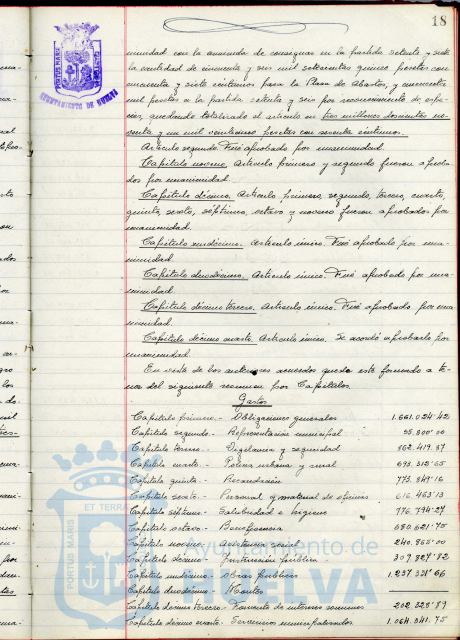 18
PORTUS MARIS
AYUNTAMIENTO DE HUELVA
unimidad con la enmienda de consignar en la partida setenta y siete
la cantidad de cincuenta y seis mil setecientas quince pesetas con
cuarenta y siete céntimos para la Plaza de Abastos, y cuarenta
mil pesetas a la partida setenta y seis por reconocimiento de espe-
cies, quedando totalizado el artículo en tres millones doscientas no-
venta y un mil veintiseis pesetas con sesenta céntimos.
Artículo segundo. Fué aprobado por unanimidad.
Capítulo noveno. Artículo primero y segundo fueron aproba-
dos por unanimidad.
Capítulo décimo. Artículo, primero, segundo, tercero, cuarto,
quinto, sexto, séptimo, octavo y noveno fueron aprobados por
unanimidad.
Capítulo undécimo. Artículo único. Fué aprobado por una-
nimidad.
Capítulo duodécimo. Artículo único. Fué aprobado por una-
nimidad.
Capítulo décimo tercero. Artículo único. Fué aprobado por una
nimidad.
Capítulo décimo cuarto. Artículo único. Se acordó aprobarlo por
unanimidad.
En vista de los anteriores acuerdos queda este formado a te-
nor del siguiente resumen por Capítulos.
Gastos
Capítulo primero.- Obligaciones generales 1.661.024'42
Capítulo segundo.- Representación municipal 95.800'00
Capítulo tercero.- Vigilancia y seguridad 862.419.37
Capítulo cuarto.- Policía urbana y rural 693.312'65
Capítulo quinto.- Recaudación 773.849'16
Capítulo sexto.- Personal y material de oficinas 616.463'13
Capítulo séptimo.- Salubridad e higiene 776.794'27
Capítulo octavo.- Beneficencia 680.621'75
Capítulo noveno.- Asistencia social 240.865'00
Capítulo décimo.- Instrucción pública 307.887'82
Capítulo undécimo.- Obras públicas 1.237.321'66
Capítulo duodécimo.- Montes
Capítulo décimo tercero.- Fomento de intereses comunes 202.328'89
Capítulo décimo cuarto.- Servicios municipalizados 1.064.341.75
PORTUS MARIS ET TERRAE
Ayuntamiento de
HUELVA